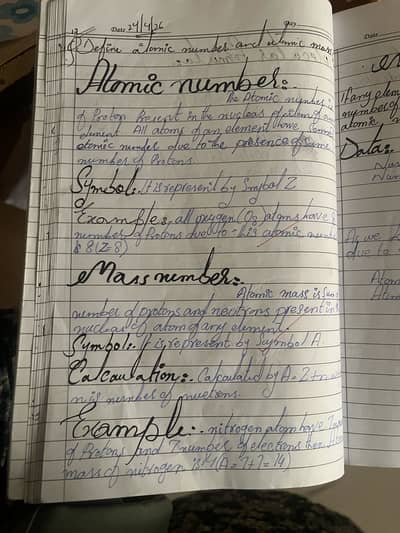 Date 24/4/26
Q Define atomic number and atomic mass
Atomic number:-
the Atomic number is
of Proton Present in the nucleus of atom of any
element All atoms of an element have same
atomic number due to the presence of same
number of Protons.
Symbol:- It is represent by Symbol Z
Examples, all oxygen (O2) atoms have 8
number of Protons due to this atomic number
is 8 (Z=8)
Mass number:-
Atomic mass is Sum
number of protons and neutrons present in
nucleas of atom of any element.
Symbol:- It is represent by Symbol A.
Calcaulation:- Calculated by A = Z + n
n is number of nuetrons.
Example:- nitrogen atom have 7
of Protons and 7 number of electrons
mass of nitrogen is 14 (A = 7 + 7 = 14)
Date
If any elem
number of
atomic
Data:
Nu
As we
due to
Atom